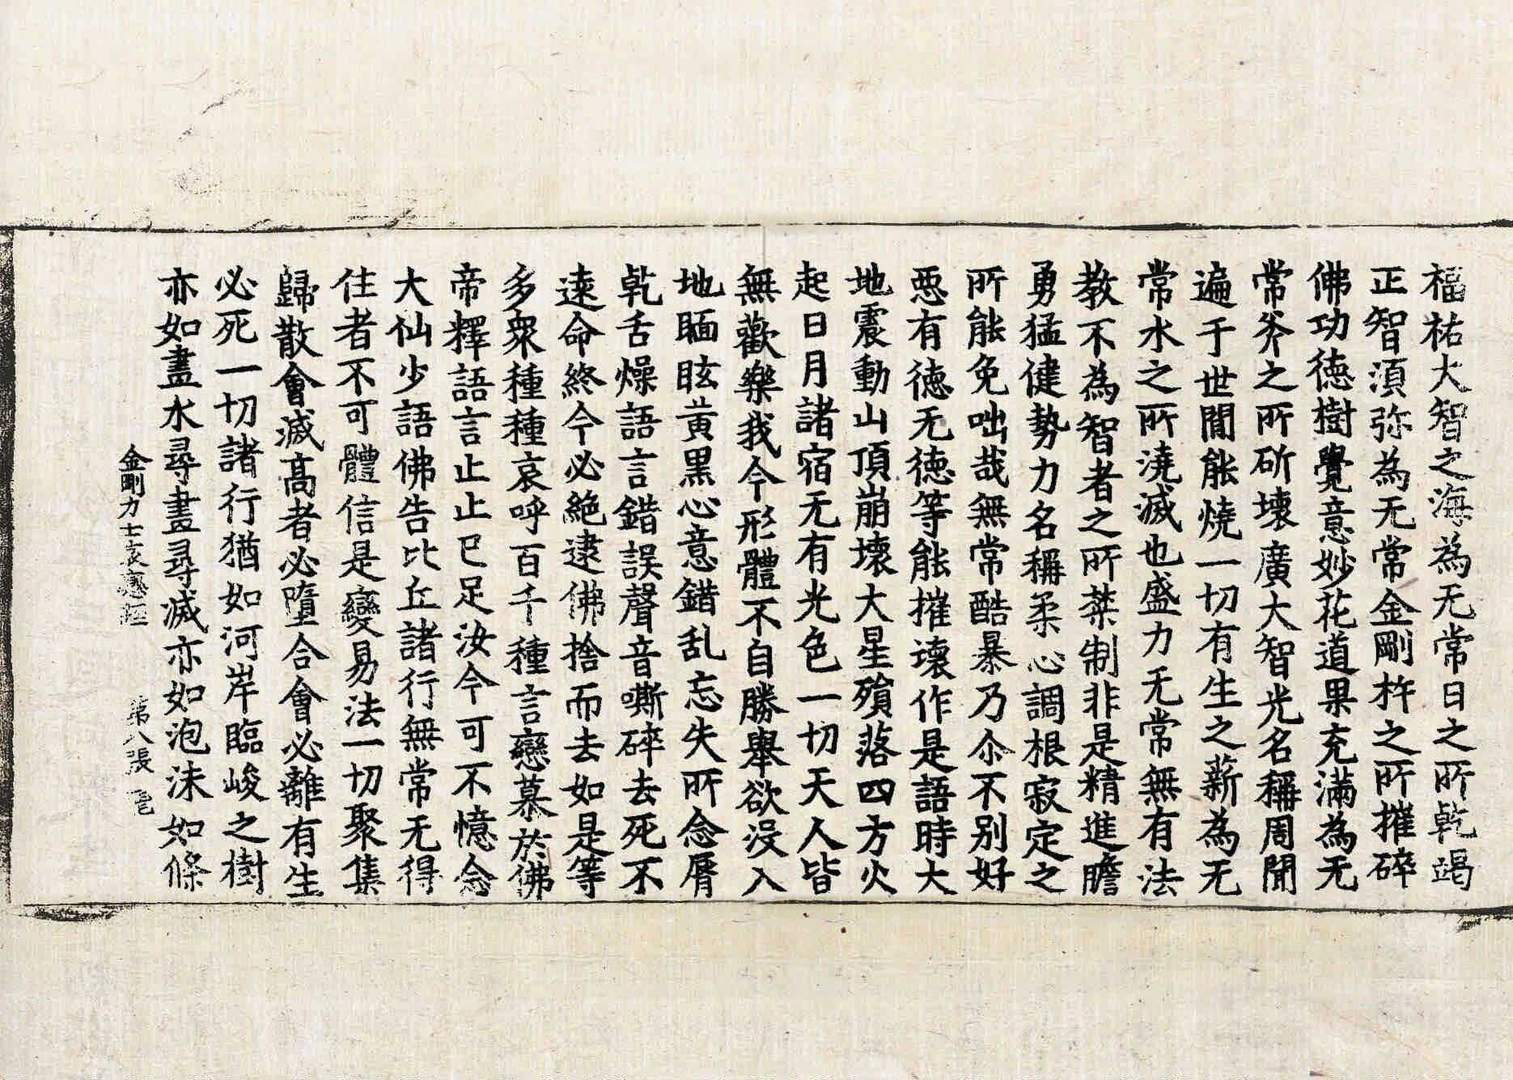 福祐大智之海為无常日之所乾竭
正智湏弥為无常金剛杵之所摧碎
佛功徳樹覺意妙花道果充滿為无
常斧之所斫壞廣大智光名稱周聞
遍于世間能燒一切有生之薪為无
常水之所澆滅也盛力无常無有法
教不為智者之所榮制非是精進膽
勇猛健勢力名稱柔心調根寂定之
所能免咄哉無常酷暴乃尒不別好
惡有徳无徳等能摧壞作是語時大
地震動山頂崩壞大星殞落四方火
起日月諸宿无有光色一切天人皆
無歡樂我今形體不自勝舉欲没入
地眴眩黄黑心意錯乱忘失所念脣
乾舌燥語言錯誤聲音嘶碎去死不
遠命終今必絶逮佛捨而去如是等
多衆種種哀呼百千種言戀慕於佛
帝釋語言止止巳足汝今可不憶念
大仙少語佛告比丘諸行無常无得
住者不可體信是變易法一切聚集
歸散會滅髙者必墮合會必離有生
必死一切諸行猶如河岸臨峻之樹
亦如畫水尋畫尋滅亦如泡沫如條
金剛力士哀戀經 第八張